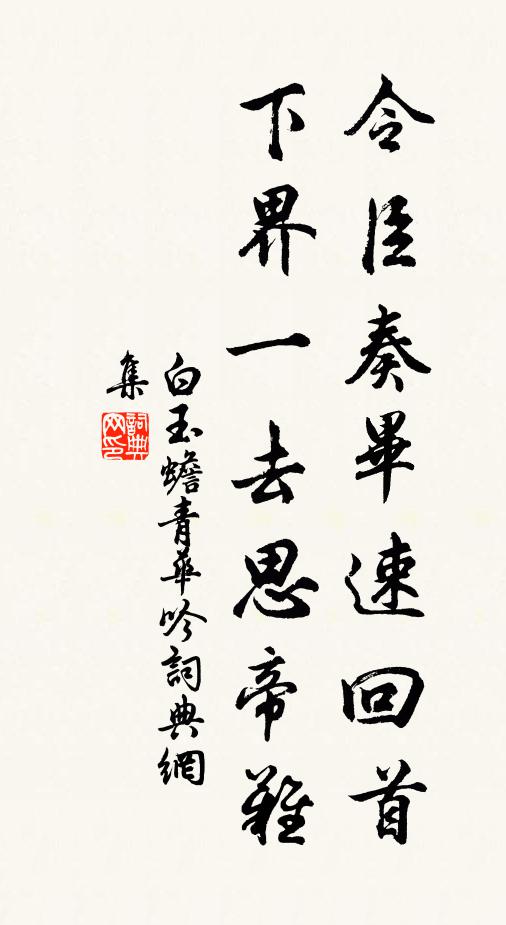 令臣奏畢速回首
下界一去思帝難
白玉蟾青華吟詞典網
集
詞典網印